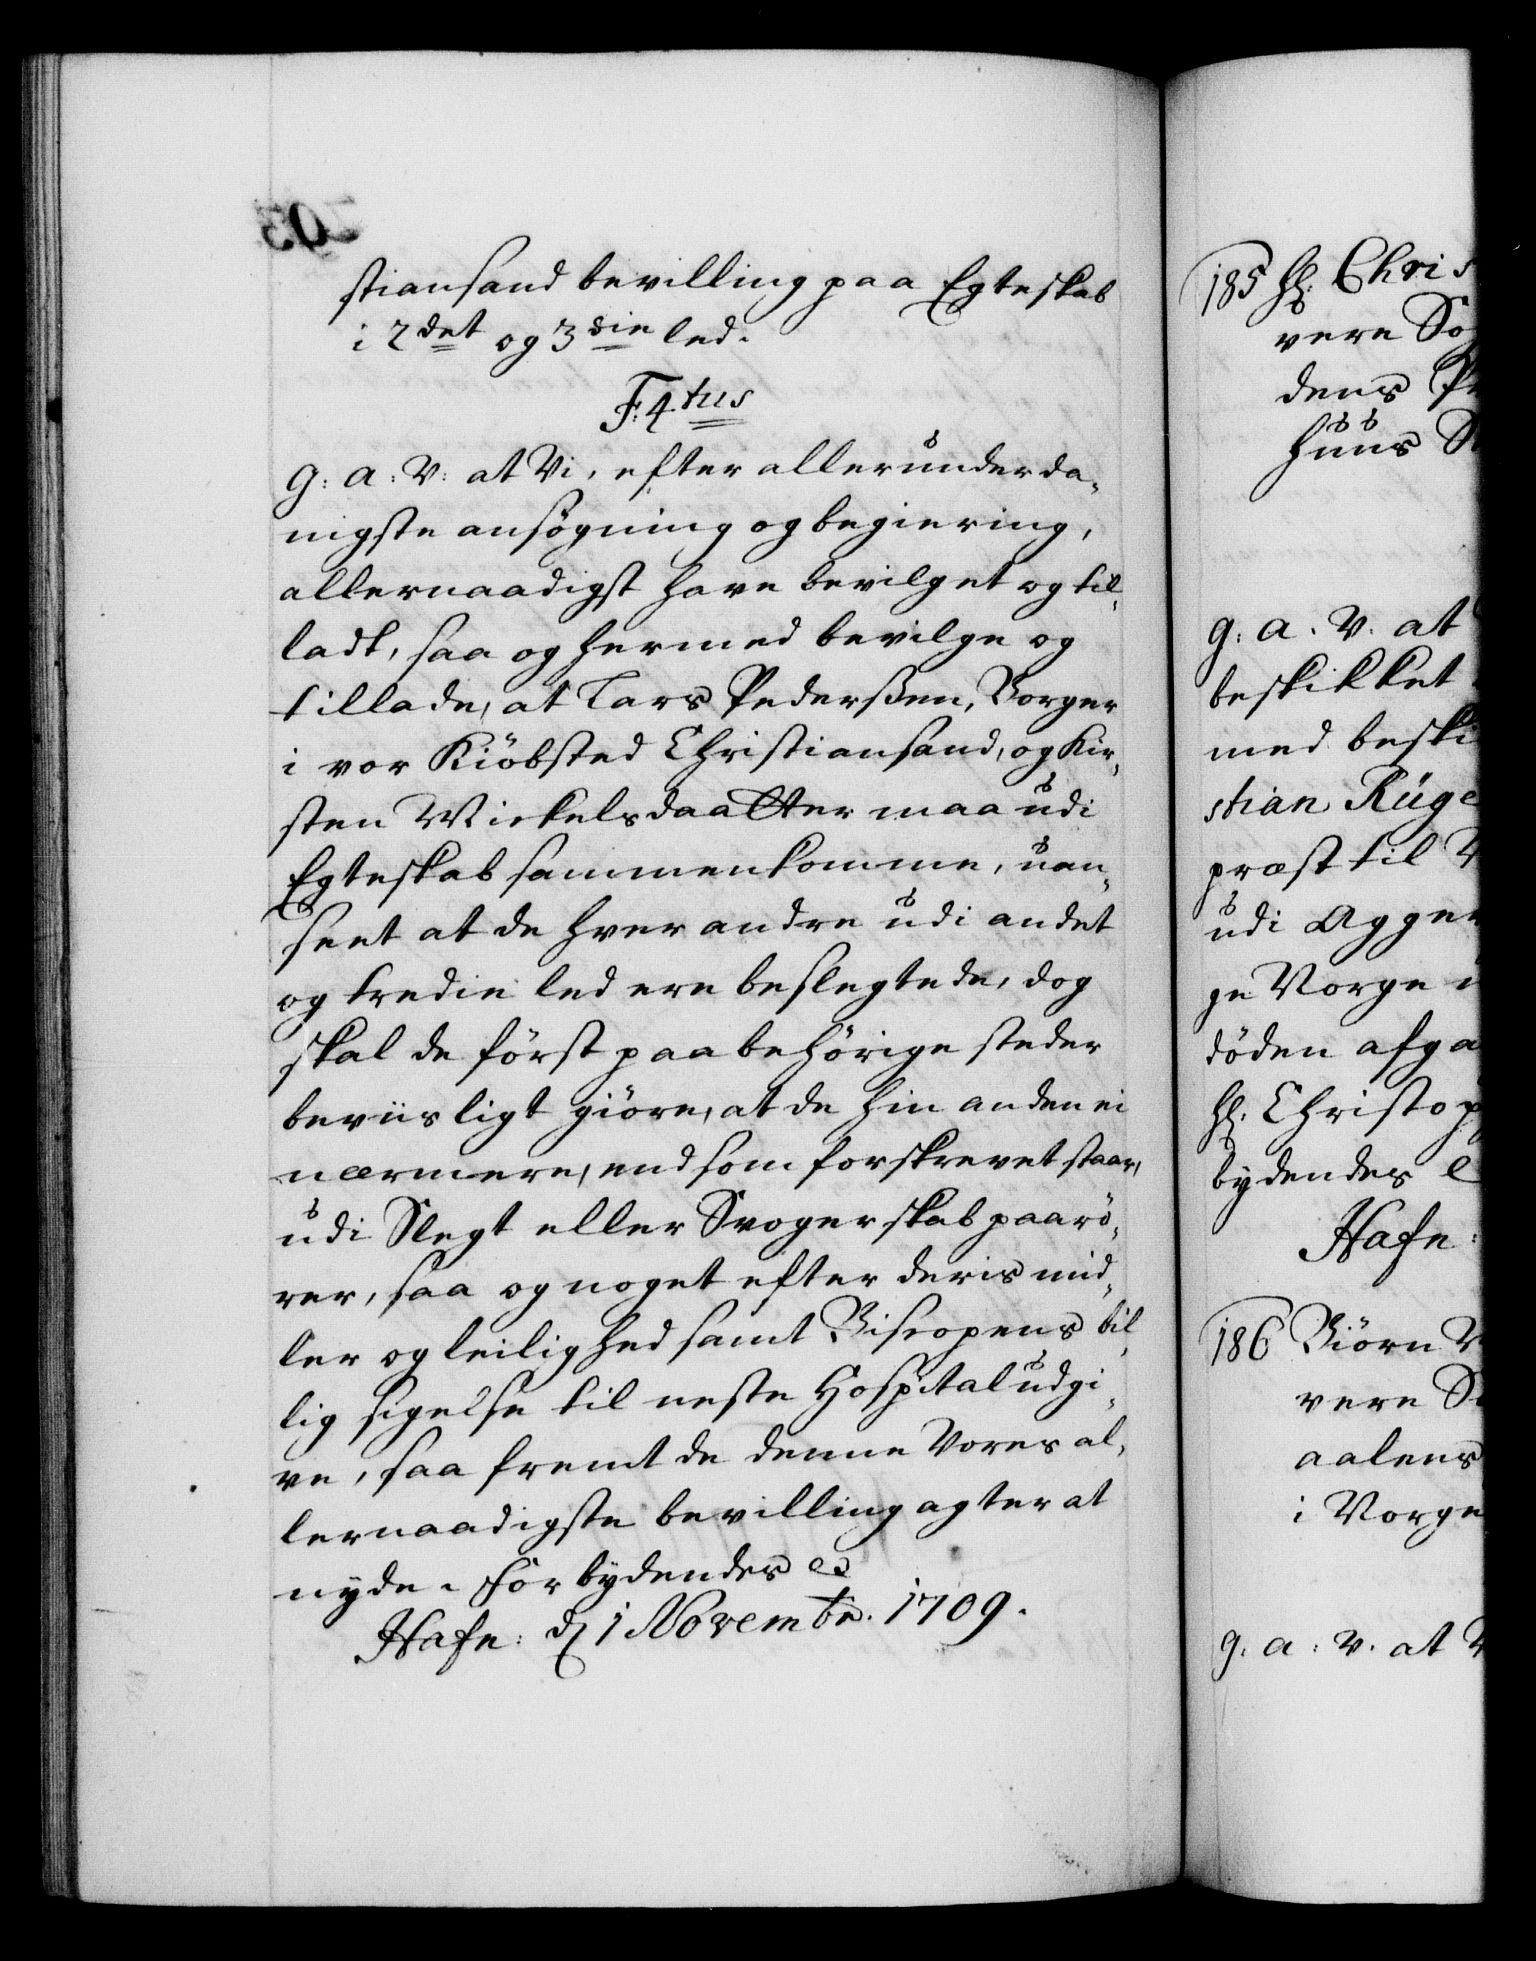 stiansand bevilling paa Egteskab
i 2det og 3die led.
F. 4tus
G: A: V: at Vi, efter allerunderda-
nigste ansøgning og begiering,
allernaadigst have bevilget og til-
ladt, saa og hermed bevilge og
tillade, at Lars Pederßen, Borger
i vor Kiöbsted Christiansand, og Kir-
sten Mickelsdaatter maa udi
Egteskab sammenkomme, uan-
seet at de hver andre udi andet
og tredie led ere beslegtede, dog
skal de først paa behörige steder
beviisligt giöre, at de hin anden ei
nærmere, end som forskrevet staar,
udi Slegt eller Svogerskab paarö-
rer, saa og noget efter deris mid-
ler og leilighed samt Biscopens bil-
lig sigelse til neste Hospital udgi-
ve, saa fremt de denne Vores al-
lernaadigste bevilling agter at
nyde. Forbydendes etc
Hafn: d 1 Novembr. 1709.
185 Hr: Chris
vere So
dens Pr
huus St
g: a. V. at
beskikket
med beski
stian Rüge
præst til V
udi Agger
ge Norge u
döden afga
Hr: Christop
bydendes e
Hafn:
186 Biörn
vere S
aalens
i Norge
g. a: V. at V